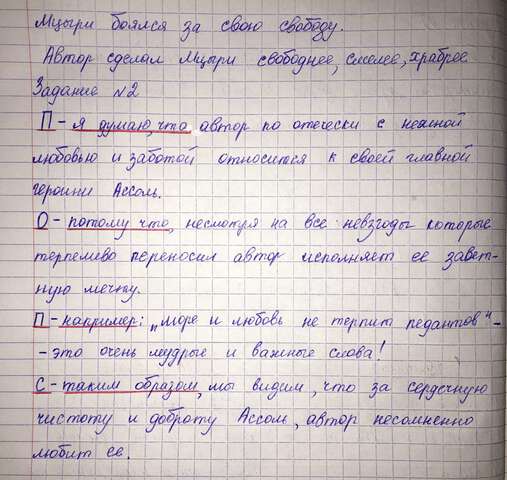 Мцыри боялся за свою свободу.
Автор сделал Мцыри свободнее, смелее, храбрее
Задание №2
П - я думаю, что автор по отечески с нежной
любовью и заботой относится к своей главной
героини Ассоль.
О - потому что, несмотря на все невзгоды которые
терпеливо переносил автор исполняет ее завет-
ную мечту.
П - например: „море и любовь не терпит педантов" -
- это очень мудрые и важные слова!
С - таким образом, мы видим, что за сердечную
чистоту и доброту Ассоль, автор несомненно
любит ее.